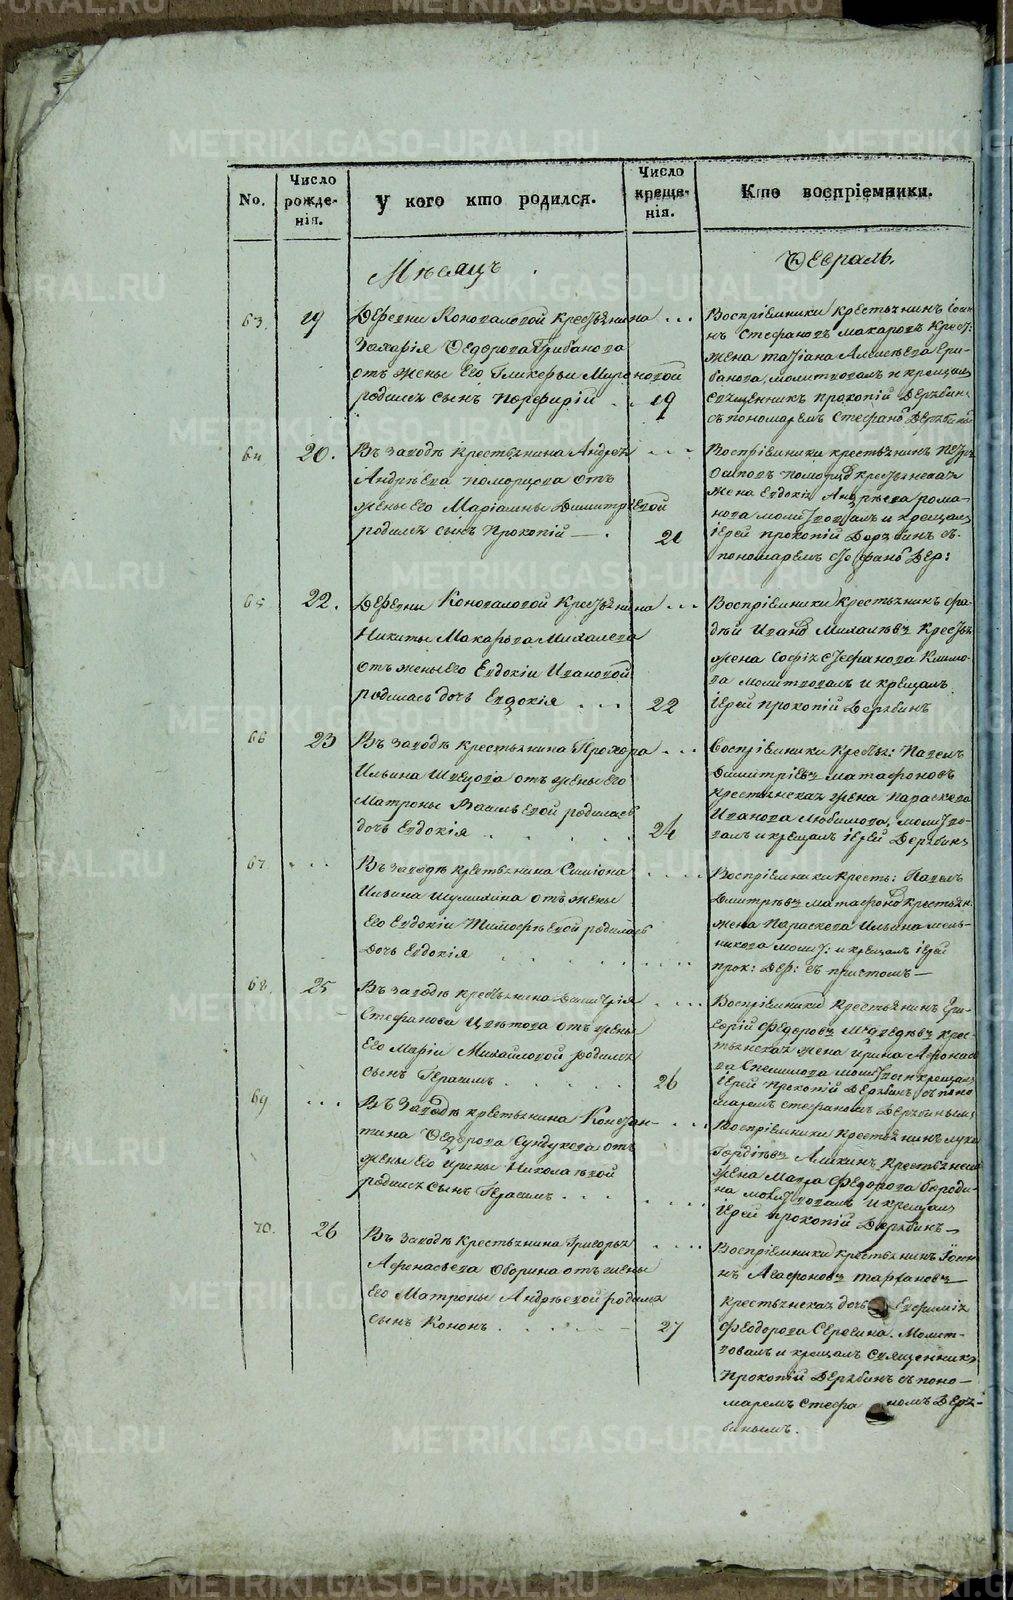 METRIKI.GASO-URAL.RU
No.
Число рожденія.
У кого кто родился.
Число крещенія.
Кто воспріемники.
Мѣсяцъ
Февраль.
63.
19
Деревни Коноваловой Крестьянина
Захарія Ѳедорова Грибанова
отъ жены Его Гликерьи Мироновой
родился сынъ Порфирій
19
Воспріемники крестьянинъ
Стефановъ Макаровъ
жена татіана
молитвовалъ и крещалъ
священникъ прокопій Дерябинъ
съ пономаремъ Стефаномъ
64
20.
Въ заводѣ Крестьянина Андрея
Андрѣева поморцова отъ
жены Его Маріамны Димитріевой
родился сынъ Прокопій
21
Воспріемники крестьянинъ
Осиповъ крестьянская
жена Евдокія Андрѣева рома-
нова молитвовалъ и крещалъ
іерей прокопій Дерябинъ съ
пономаремъ Стефаномъ Дер:
65
22.
Деревни Коноваловой Крестьянина
Никиты Макарова Михалева
отъ жены Его Евдокіи Ивановой
родилась дочь Евдокія
22
Воспріемники крестьянинъ фа-
дѣй Ивановъ Михалевъ
жена Софія Стефанова Климо-
ва молитвовалъ и крещалъ
іерей прокопій Дерябинъ
66
23
Въ заводѣ крестьянина Прохора
Ильина Швецова отъ жены его
Матроны Васильевой родилась
дочь Евдокія
24
Воспріемники Павелъ
Димитріевъ Матафоновъ
крестьянская жена параскева
Иванова Любимова, молитво-
валъ и крещалъ іерей Дерябинъ
67.
Въ заводѣ крестьянина Симіона
Ильина Шумилина отъ жены
его Евдокіи Тимофѣевой родилась
дочь Евдокія
Воспріемники Кресть: Павелъ
Дмитріевъ Матафоновъ крестьян.
жена Параскева Ильина мель-
никова молит: и крещалъ іерей
прок: Дер: съ причтомъ
68
25
Въ заводѣ крестьянина Димитрія
Стефанова Цвѣтова отъ жены
его Маріи Михайловой родился
сынъ Герасимъ
26
Воспріемники крестьянинъ Гри-
горій Федоровъ Медведевъ крес-
тьянская жена Ирина
и крещалъ
іерей прокопій Дерябинъ съ поно
маремъ стефаномъ Дерябинымъ
69
Въ заводѣ крестьянина Констан-
тина Ѳедорова Сундукова отъ
жены его Ирины Николаевой
родился сынъ Герасимъ
Воспріемники крестьянинъ лука
Гордѣевъ Аликинъ
жена Мавра Федорова бороди-
на молитвовалъ и крещалъ
іерей прокопій Дерябинъ
70.
26
Въ заводѣ крестьянина Григорья
Афонасьева Оборина отъ жены
его Матроны Андрѣевой родился
сынъ Кононъ
27
Воспріемники крестьянинъ
Агафоновъ таркановъ
крестьянская дочь Евфимія
Федорова Серегина. Молит-
вовалъ и крещалъ Священникъ
Прокопій Дерябинъ съ поно-
маремъ стефаномъ Деря-
бинымъ.